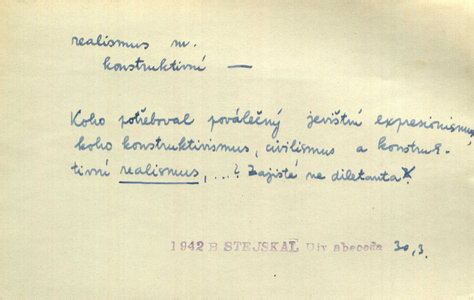 realismus m.
konstruktivní —
Koho potřeboval poválečný jevištní expresionismus,
koho konstruktivismus, civilismus a konstruk-
tivní realismus, ...? Zajisté ne diletanta
1942 B STEJSKAL Div abeceda 30,3.